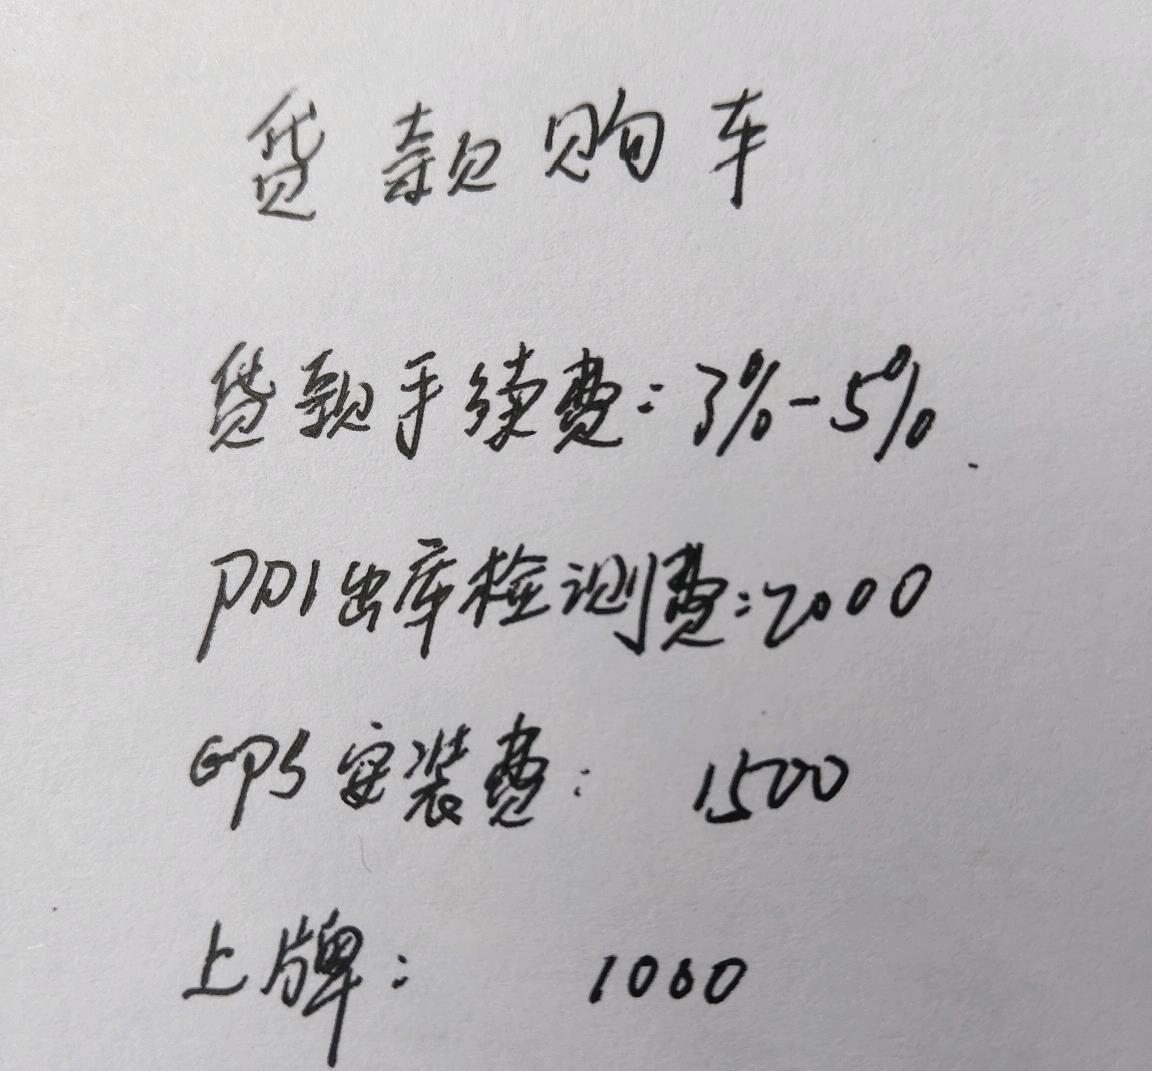 贷款购车
贷款手续费：3%-5%
PDI出库检测费：2000
GPS安装费： 1500
上牌： 1000